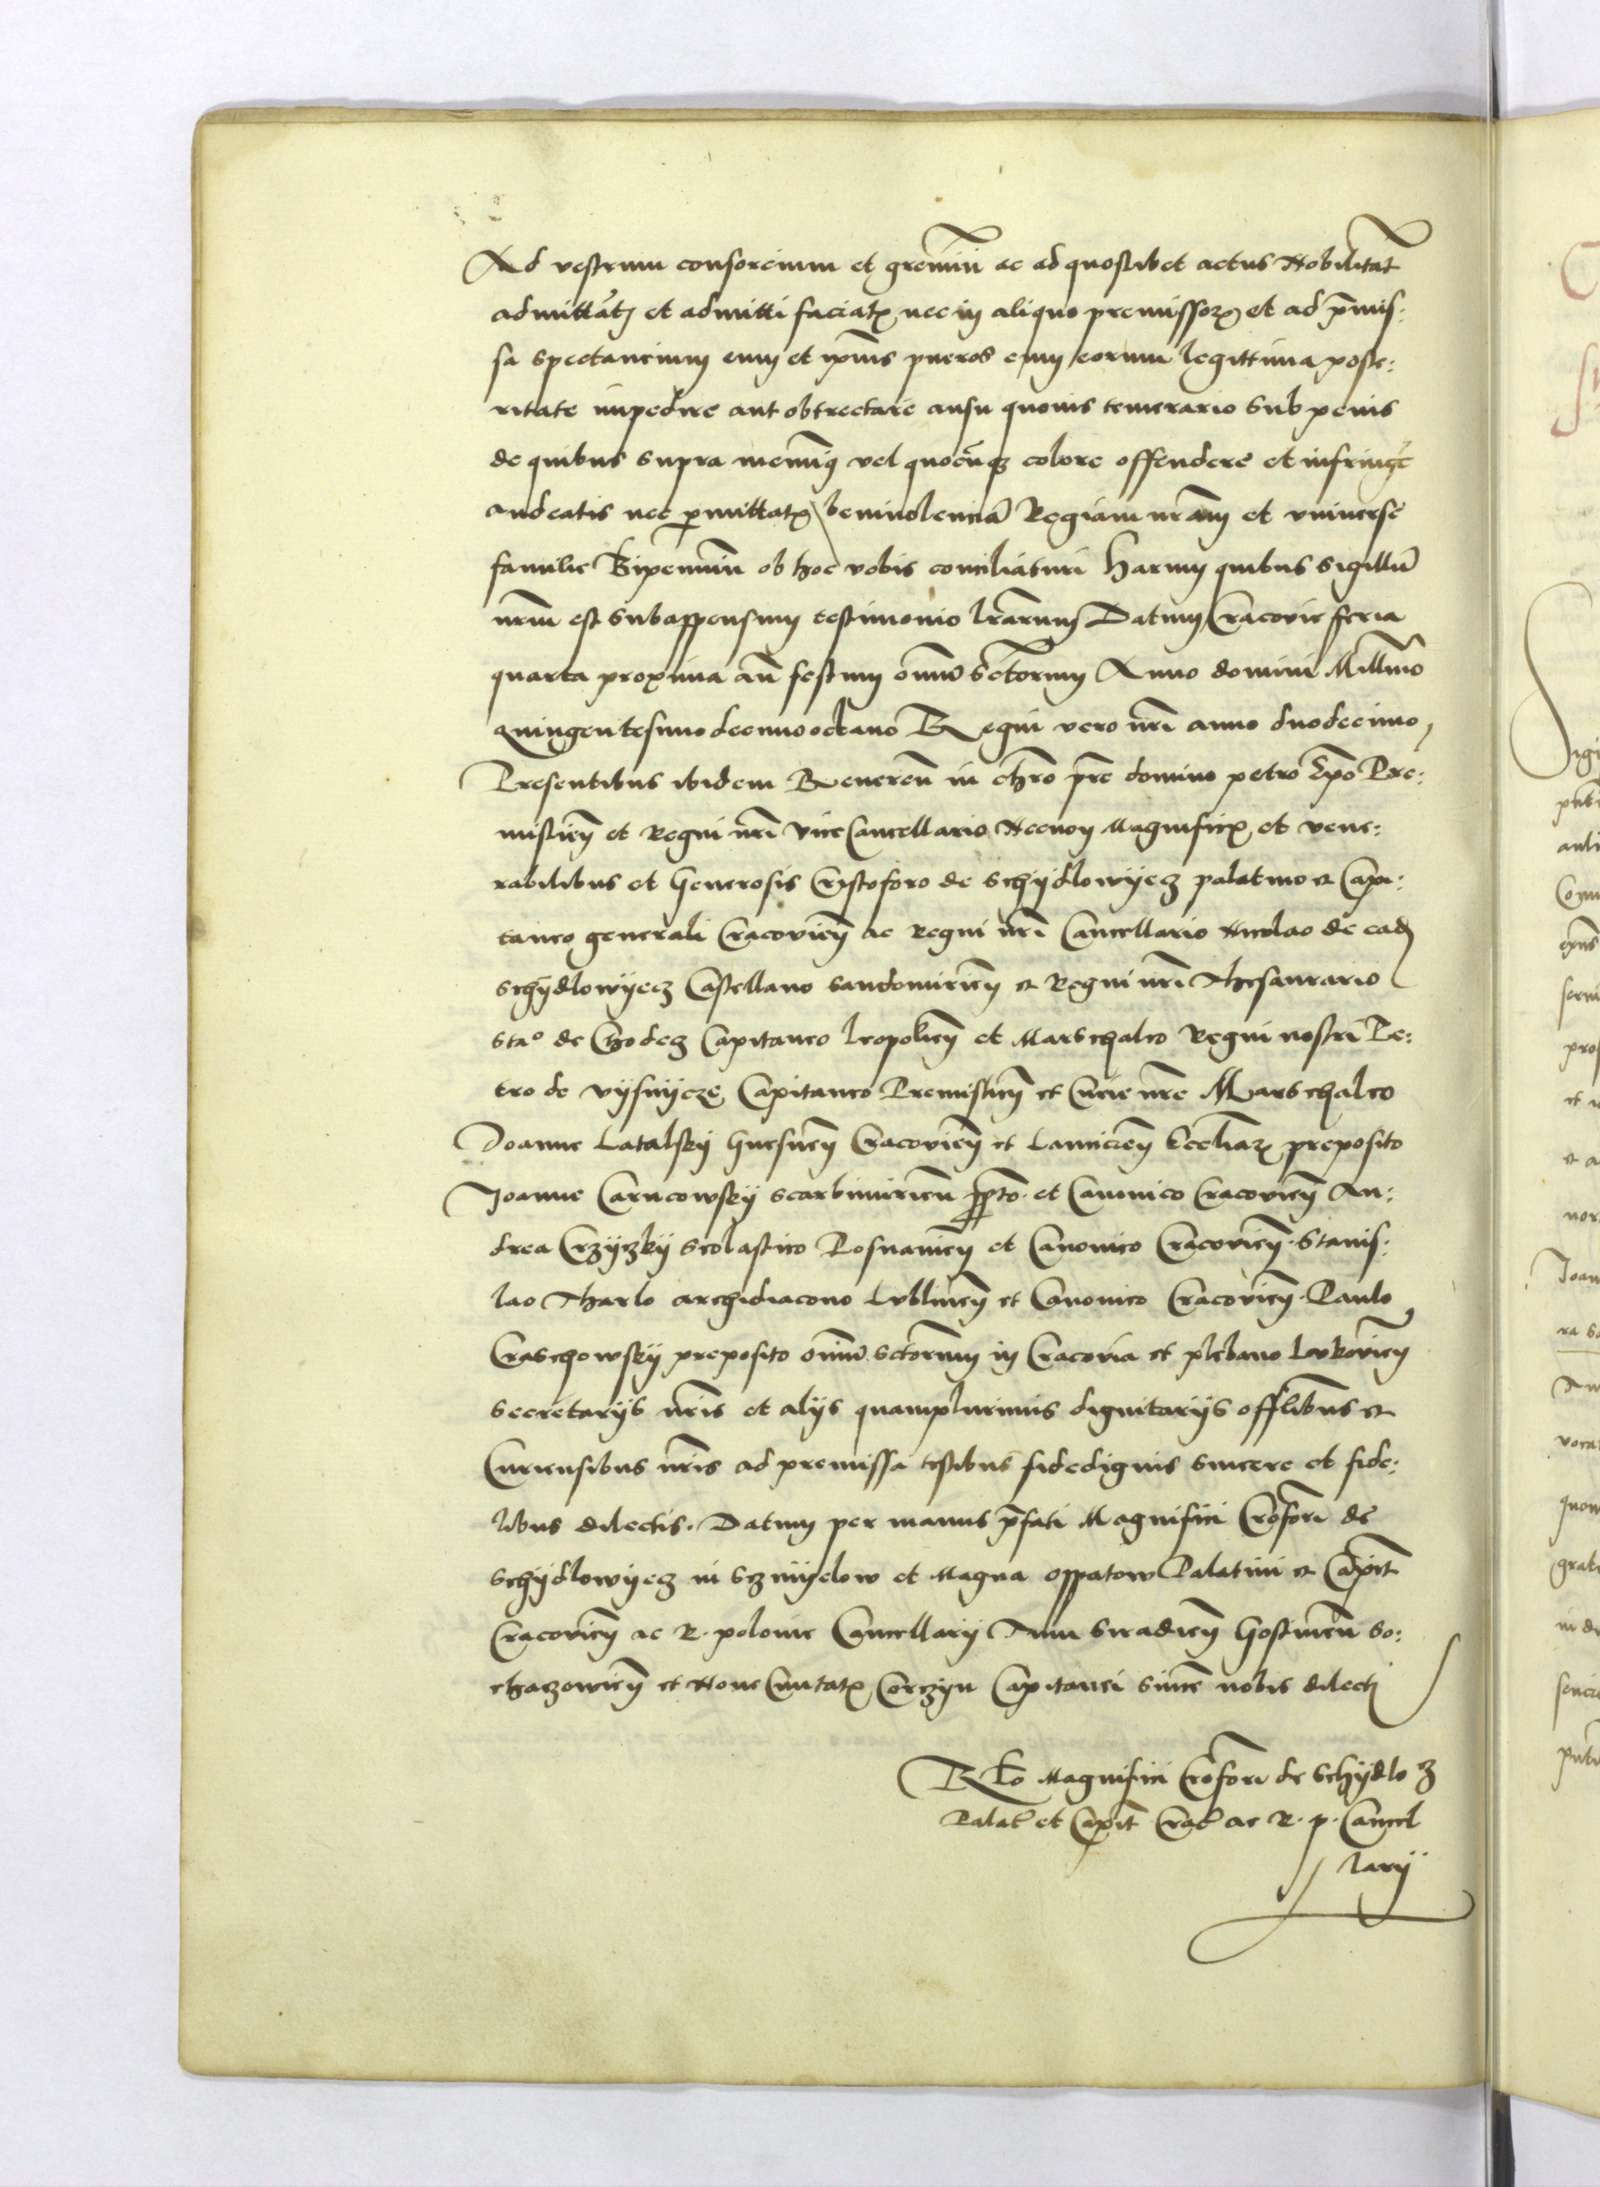 Ad vestrum consorcium et gremiũ ac ad quoslibet actus Nobilitat̃
admittatꝭ et admitti faciatꝭ nec in aliquo premissorꝝ et ad p̃mis:
sa spectancium eum et ip̃ius pueros cum eorum legittima poste:
ritate impedire aut obtrectare ausu quovis temerario sub penis
de quibus supra meminiꝰ vel quocũqꝫ colore offendere et infringe᷑
audeatis nec ꝑmittatꝭ benivolenciã Regiam nr̃am et universe
familie Bipenniũ ob hoc vobis conciliaturi Harum quibus sigillũ
nr̃m est subappensum testimonio lr̃arum Datum Cracovie feria
quarta proxima añ festum omniũ Sctorum Anno domini Millm̃o
quingentesimo decimooctavo Regni vero nr̃i anno duodecimo
Presentibus ibidem Reveren̄ in chr̃o pr̃e domino petro Ep̃o Pre:
mislien̄ et Regni nr̃i Vice Cancellario Necnon Magnificꝭ et vene:
rabilibus et Generosis Cristoforo de Schydlowyecz palatino et Capi:
taneo generali Cracovien̄ ac Regni nr̃i Cancellario Nicolao de eadꝫ
Schydlowyecz Castellano Sandomirien̄ et Regni nr̃i Thesaurario
Staº de Chodecz Capitaneo leopolien̄ et Marschalco Regni nostri Pe:
tro de Vysnycze Capitaneo Premislien̄ et Curie nr̃e Marschalco
Joanne Latalsky Gnesnen̄ Cracovien̄ et Lanicien̄ Eccliarꝝ preposito
Joanne Carncowsky Scarbimirien̄ pp̃to et Canonico Cracovien̄ An:
drea Crzyczky Scolastico Posnanien̄ et Canonico Cracovien̄ . Stanis:
lao Tharlo archidiacono Lublinen̄ et Canonico Cracovien̄ . Paulo
Craschowsky preposito omniũ sctorum in Cracovia et plebano
Secretarijs nr̃is et alijs quamplurimis dignitarijs offlibus et
Curiensibus nr̃is ad premissa testibus fidedignis sincere et fide:
libus dilectis . Datum per manus p̃fati Magnifici Crofori de
Schydlowyecz in Szmyelow et Magna oppatow Palatini et Capit̃
Cracovien̄ ac R . polonie Cancellarij Tum Siradien̄ Gostinen̄ So:
chaczovien̄ et Nove Civitatꝭ Corczyn Capitanei sinc̃e nobis dilecti
Rlo Magnifici Crofori de Schydlo ꝫ
Palat̃ et Capit̃ Crac̃ ac R . p . Cancel
larij